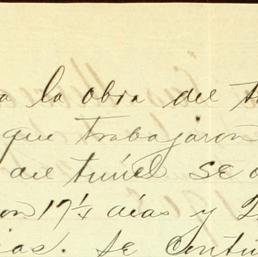 a la obra del
que trabajaron
del tunel se
on 17½ dias y 2
ias. Se